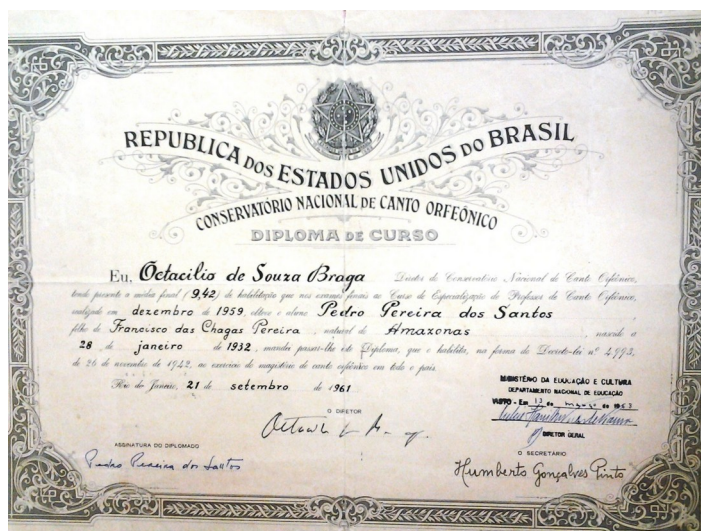 REPUBLICA DOS ESTADOS UNIDOS DO BRASIL
CONSERVATÓRIO NACIONAL DE CANTO ORFEÔNICO
DIPLOMA DE CURSO
Eu, Octacilio de Souza Braga Diretor do Conservatório Nacional de Canto Orfeônico,
tendo presente a média final (9,42) de habilitação que nos exames finais do Curso de Especialização de Professor de Canto Orfeônico,
realizado em dezembro de 1959, obteve o aluno Pedro Pereira dos Santos
filho de Francisco das Chagas Pereira, natural de Amazonas, nascido a
28 de janeiro de 1932, mandei passar-lhe este Diploma, que o habilita, na forma do Decreto-lei nº 4.993,
de 26 de novembro de 1942, ao exercício do magistério de canto orfeônico em todo o país.
Rio de Janeiro, 21 de setembro de 1961
MINISTÉRIO DA EDUCAÇÃO E CULTURA
DEPARTAMENTO NACIONAL DE EDUCAÇÃO
VISTO - Em 13 de março de 1963
DIRETOR GERAL
O DIRETOR
ASSINATURA DO DIPLOMADO
Pedro Pereira dos Santos
O SECRETÁRIO
Humberto Gonçalves Pinto